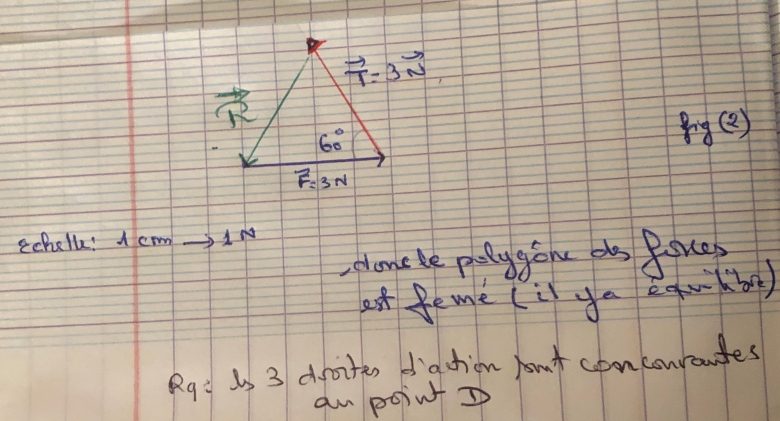 T = 3N
R
60°
F = 3N
fig (2)
Echelle: 1 cm → 1N
, donc le polygône des forces
est femé (il y a équilibre)
Rq: ls 3 droites d'action sont concourantes
au point D